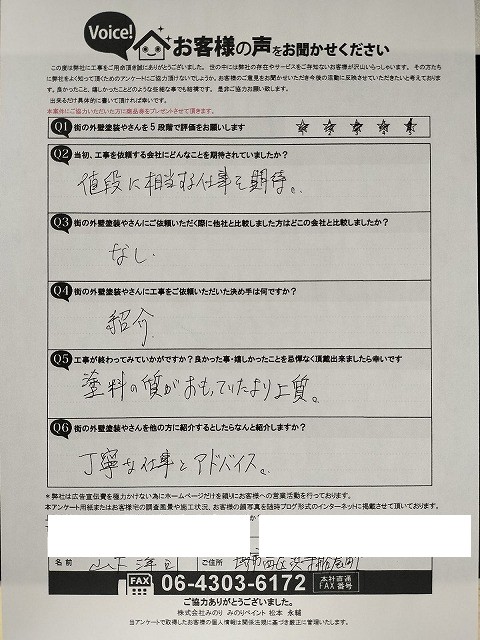 Voice!
お客様の声をお聞かせください
この度は弊社に工事をご用命頂き誠にありがとうございました。世の中には弊社の存在やサービスをご存知ないお客様が沢山いらっしゃいます。その方たち
に弊社をよく知って頂くためのアンケートにご協力頂けないでしょうか。お客様のご意見をお聞かせいただき今後の活動に反映させていただきたいと考えておりま
す。良かったこと、嬉しかったことどのような些細な事でも結構です。是非ご協力お願い致します。
出来るだけ具体的に書いて頂ければ幸いです。
本案件にご協力いただいた方に商品券をプレゼントさせて頂きます。
Q1 街の外壁塗装やさんを5段階で評価をお願いします ☆ ☆ ☆ ☆ ☆
Q2 当初、工事を依頼する会社にどんなことを期待されていましたか?
値段に相当する仕事を期待。
Q3 街の外壁塗装やさんにご依頼いただく際に他社と比較しました方はどこの会社と比較しましたか?
なし.
Q4 街の外壁塗装やさんに工事をご依頼いただいた決め手は何ですか?
紹介.
Q5 工事が終わってみていかがですか?良かった事・嬉しかったことを忌憚なく頂戴出来ましたら幸いです
塗料の質がおもっていたより上質。
Q6 街の外壁塗装やさんを他の方に紹介するとしたらなんと紹介しますか?
丁寧な仕事とアドバイス。
*弊社は広告宣伝費を極力かけない為にホームページだけを頼りにお客様への営業活動を行っております。
本アンケート用紙またはお客様宅の調査風景や施工状況、お客様の顔写真を随時ブログ形式のインターネットに掲載させて頂いております。
名前
ご住所
FAX 06-4303-6172 本社直通 FAX番号
ご協力ありがとうございました。
株式会社みのり みのりペイント 松本 永輔
当アンケートで取得したお客様の個人情報は関係法規に基づき厳正に管理いたします。